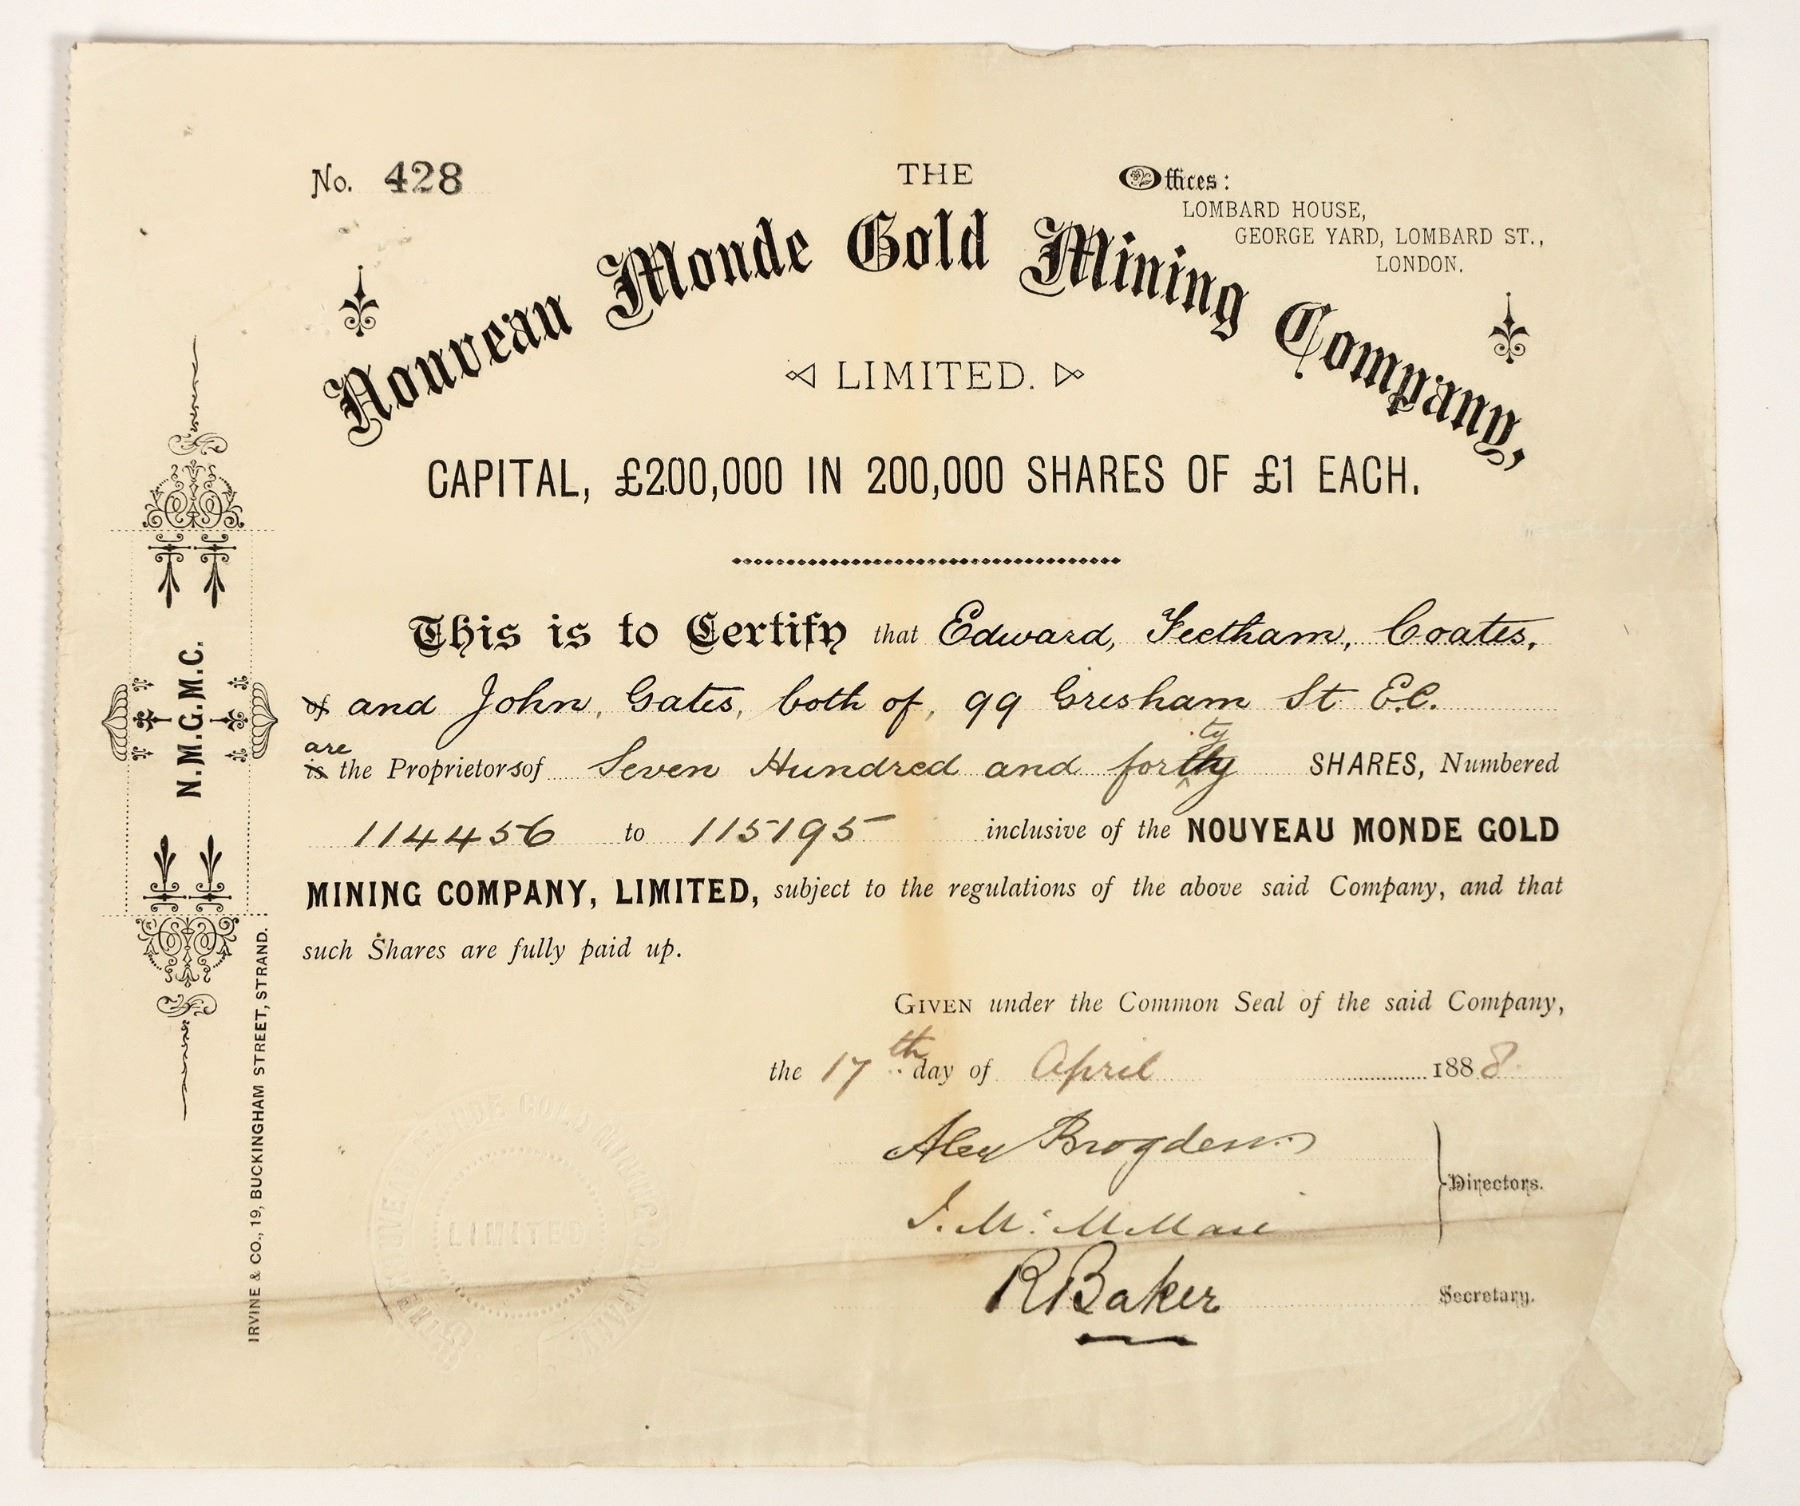 No. 428
THE
Offices:
LOMBARD HOUSE,
GEORGE YARD, LOMBARD ST.,
LONDON.
Nouveau Monde Gold Mining Company,
LIMITED.
CAPITAL, £200,000 IN 200,000 SHARES OF £1 EACH.
This is to Certify that Edward, Feetham, Coates,
of and John, Gates, both of, 99 Gresham St E.C.
are
is the Proprietors of Seven Hundred and forty SHARES, Numbered
114456 to 115195 inclusive of the NOUVEAU MONDE GOLD
MINING COMPANY, LIMITED, subject to the regulations of the above said Company, and that
such Shares are fully paid up.
GIVEN under the Common Seal of the said Company,
the 17th day of April 1888.
Alex Brogden
Directors.
R Baker
Secretary.
N.M.G.M.C.
IRVINE & CO., 19, BUCKINGHAM STREET, STRAND.
THE NOUVEAU MONDE GOLD MINING COMPANY
LIMITED